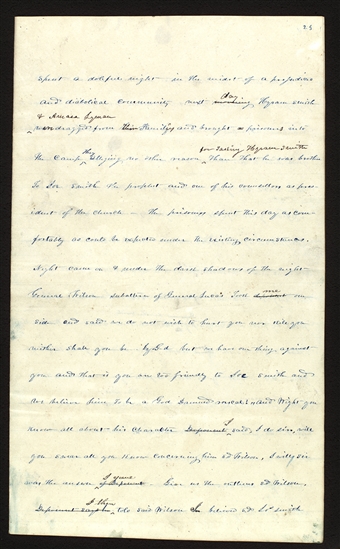 25
spent a doleful night in the midst of a prejudiced
and diabolical community next day morning Hyrum Smith
& Amasa Lyman
were dragged from their families and brought prisoners into
the Camp they alleging no other reason for taking Hyrum Smith than that he was brother
To Joe Smith the prophet and one of his counsellors as pres-
ident of the church – the prisoners spent this day as com-
fortably as could be expected under the existing circumstances.
Night came on & under the dark shadows of the night
General Wilson subaltern of General Lucas's Took me deponent on
side and said we do not wish to hurt you nor kill you
neither shall you be by God but we have one thing against
you and that is you are too friendly to Joe Smith and
we believe him to be a God Damned rascal: and Wight you
know all about his character Deponent I said, I do sir, will
you swear all you know concerning him sd Wilson, I will sir
was the answer I gave of Deponent. Give us the outlines sd Wilson.
I then Deponent says to told said Wilson I believed sd Joe Smith